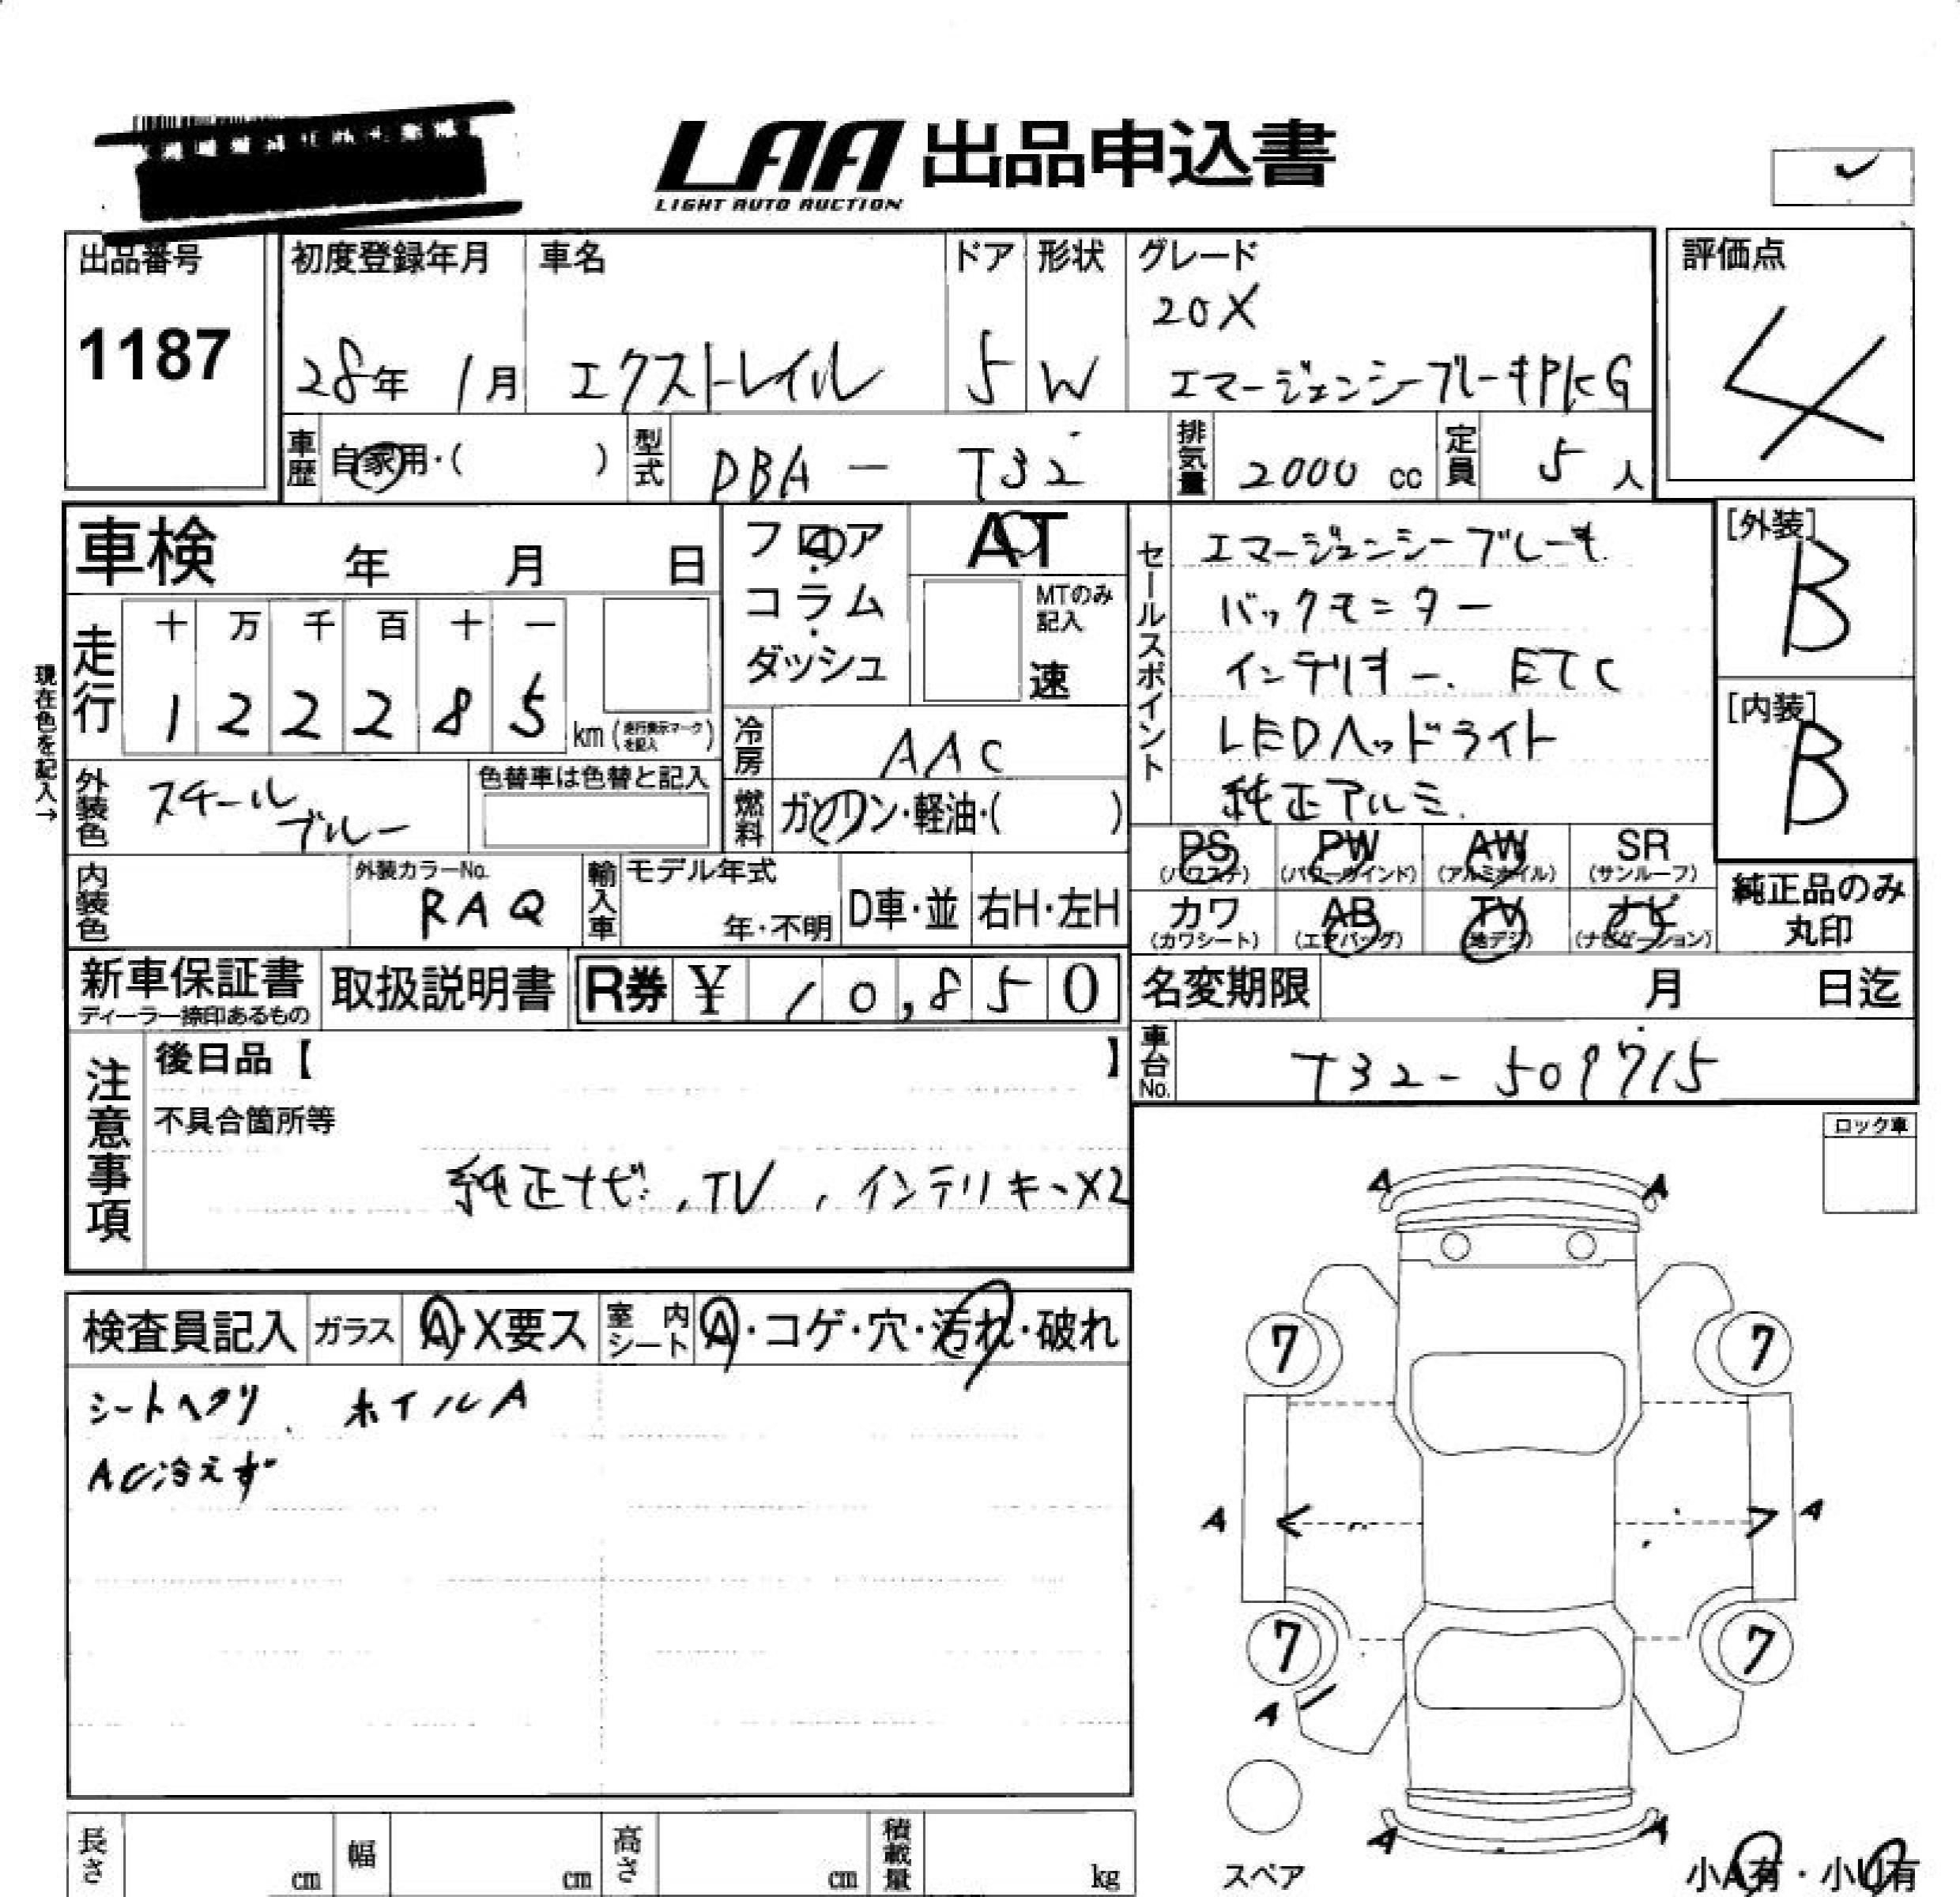 LAA 出品申込書
LIGHT AUTO AUCTION
出品番号
1187
初度登録年月
28年 1月
車名
エクストレイル
ドア
5
形状
W
グレード
20X
エマージェンシーブレーキPKG
評価点
4
車歴 自家用・( )
型式 DBA - T32
排気量 2000 cc
定員 5人
車検 年 月 日
フロア・コラム・ダッシュ
AT
MTのみ記入
速
セールスポイント
エマージェンシーブレーキ
バックモニター
インテリキー. ETC
LEDヘッドライト
純正アルミ.
[外装]
B
[内装]
B
現在色を記入→
走行
十 万 千 百 十 一
1 2 2 2 8 5 km (走行表示マークを記入)
冷房 AAC
燃料 ガソリン・軽油・( )
外装色 スチールブルー
色替車は色替と記入
内装色
外装カラーNo.
RAQ
輸入車
モデル年式
年・不明
D車・並
右H・左H
PS (パワステ)
PW (パワーウインド)
AW (アルミホイル)
SR (サンルーフ)
カワ (カワシート)
AB (エアバッグ)
TV (地デジ)
ナビ (ナビゲーション)
純正品のみ丸印
新車保証書
ディーラー捺印あるもの
取扱説明書
R券 ¥ 10,850
名変期限 月 日迄
車台No. T32-509715
注意事項
後日品【 】
不具合箇所等
純正ナビ, TV, インテリキーX2
ロック車
検査員記入
ガラス A・X要ス
室内シート A・コゲ・穴・汚れ・破れ
シートヘタリ、ホイルA
AC冷えず
A A
7 7
A A
7 7
A
A A
スペア
小A有・小U有
長さ cm
幅 cm
高さ cm
積載量 kg